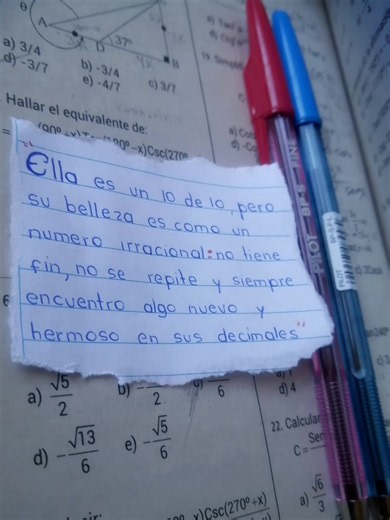 θ
A
D
37°
B
a) 3/4
b) -3/4
c) 3/7
d) -3/7
e) -4/7
Hallar el equivalente de:
"Ella es un 10 de 10, pero
su belleza es como un
numero irracional: no tiene
fin, no se repite y siempre
encuentro algo nuevo y
hermoso en sus decimales"
PILOT BP-S
PILOT
a) √5/2
d) -√13/6
e) -√5/6
d) 4
22. Calcular
C =
a) √6/3
x)Csc(270°+x)